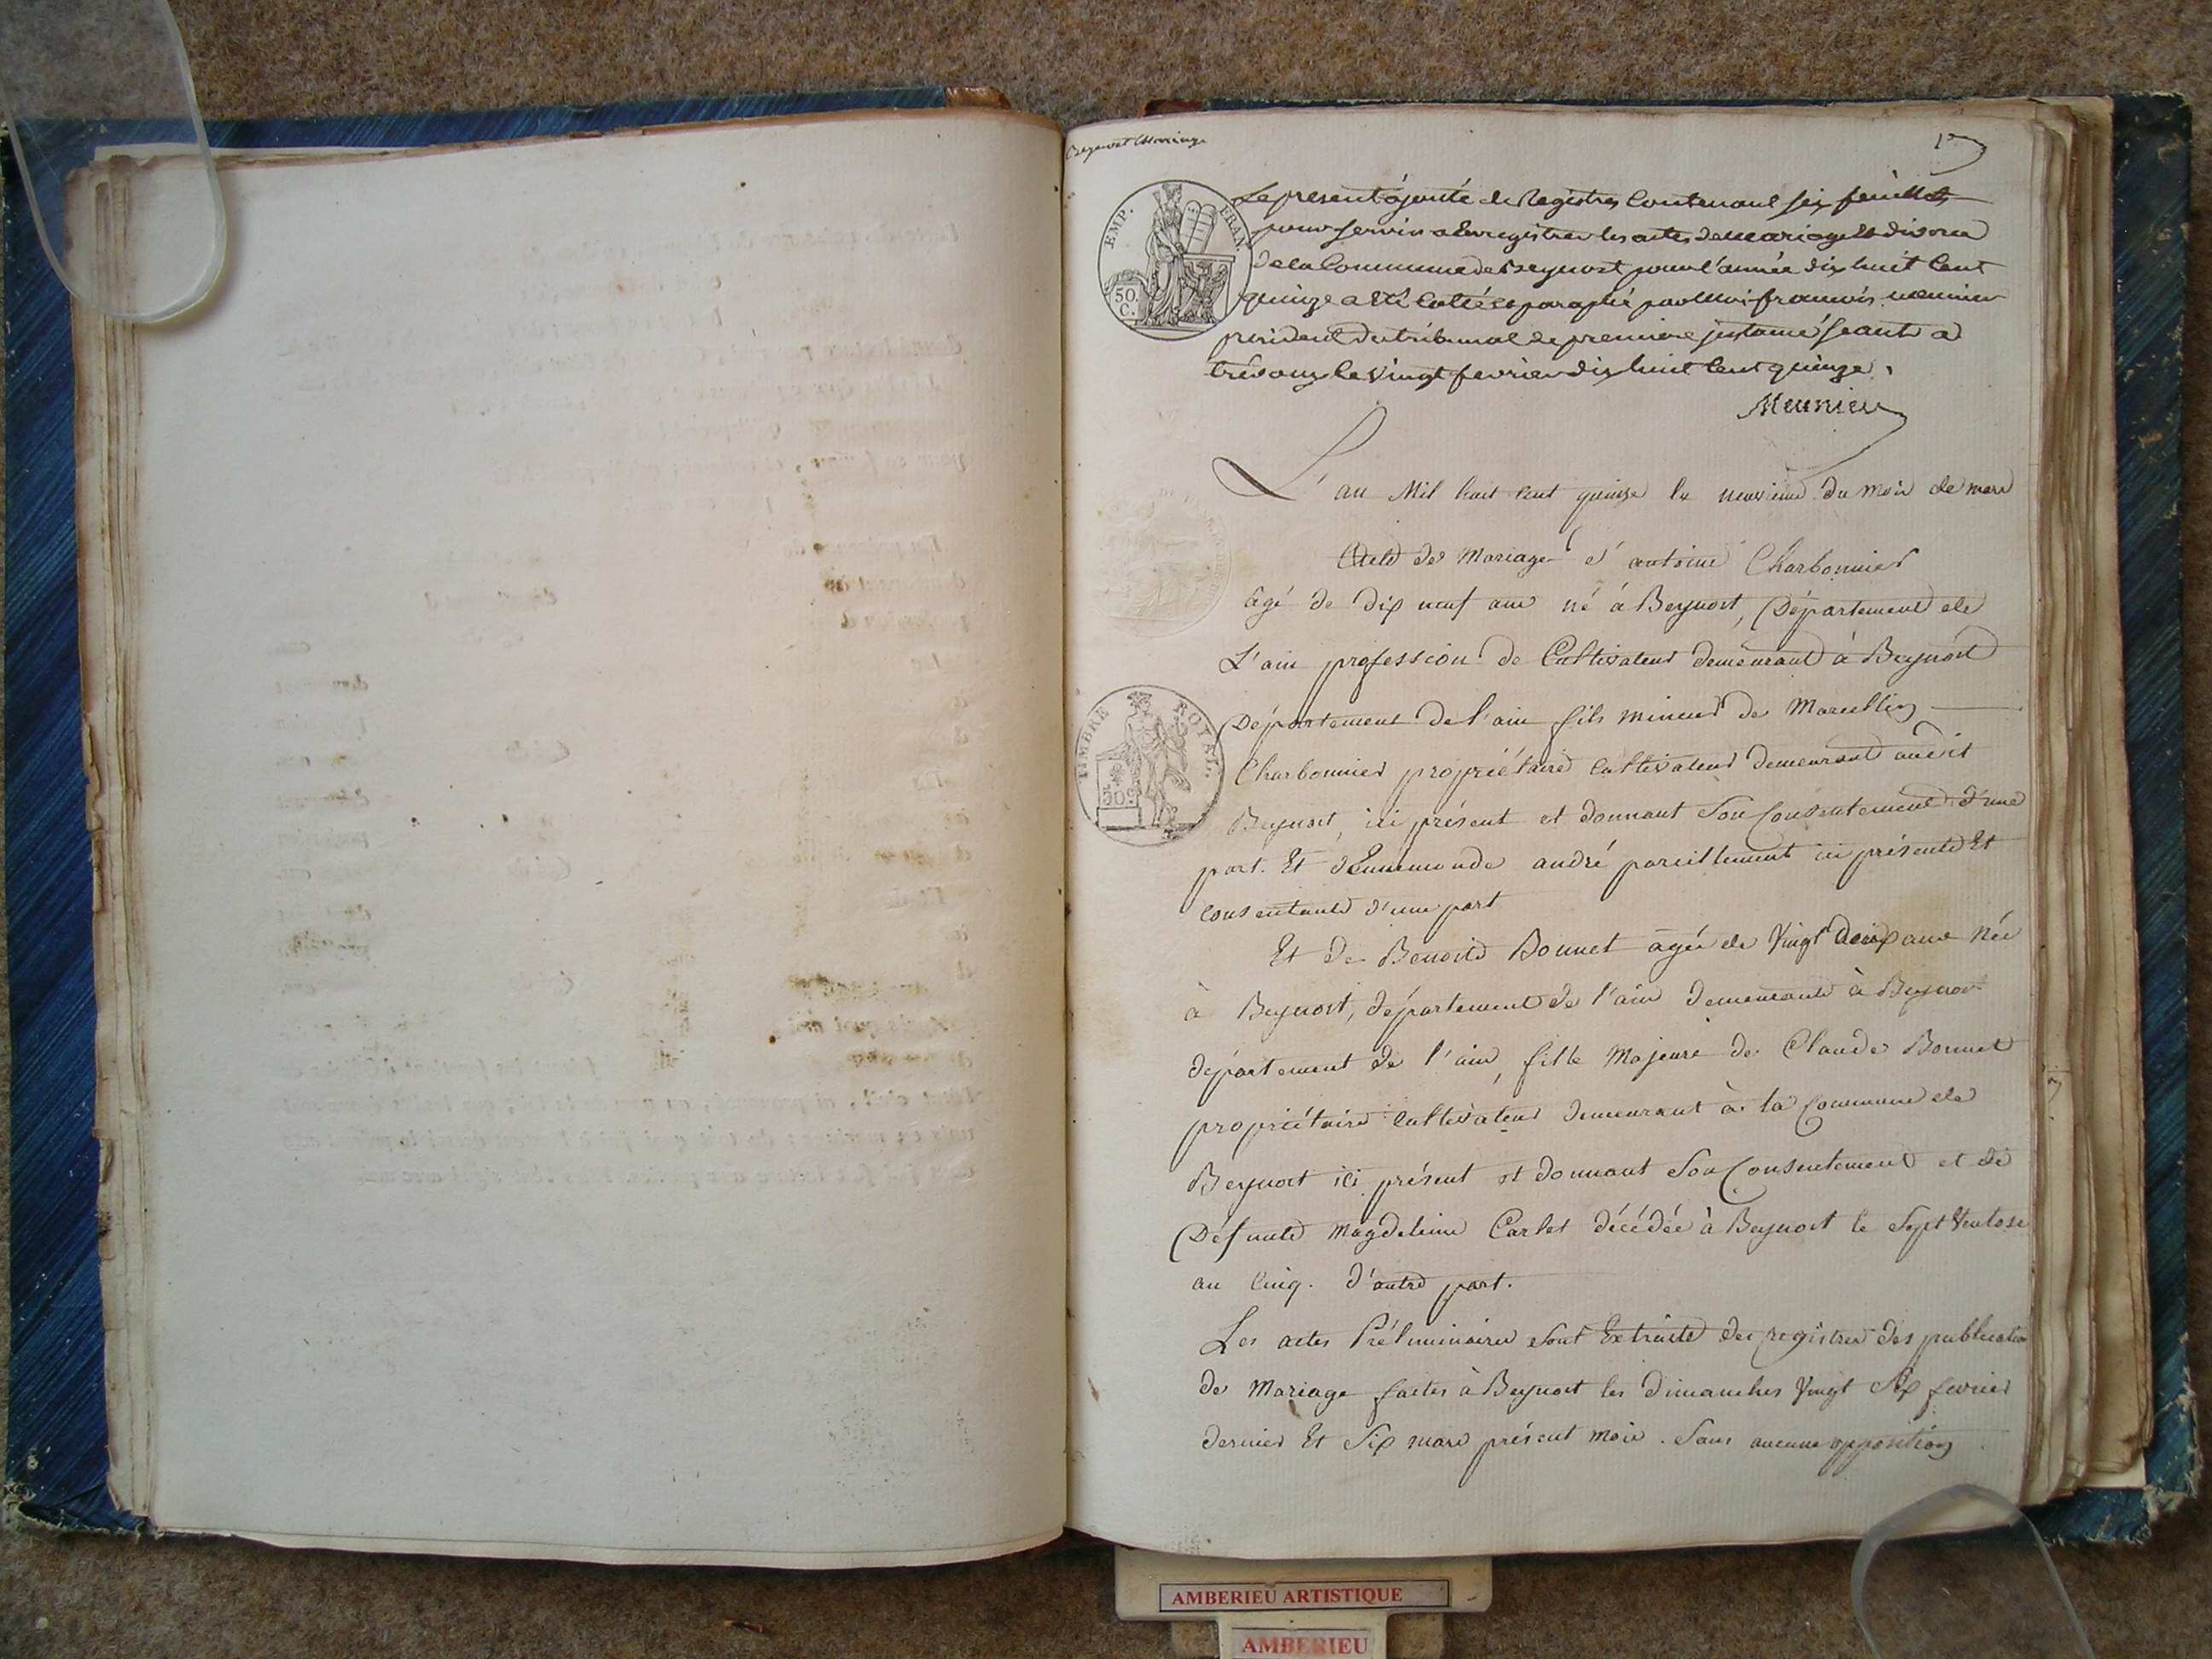 Beynost Mariage
1er
Le present ajouté de Registres Contenant six feuillets
pour servir a Enregistrer les actes de mariage et divorce
de la Commune de Beynost pour l'année dix huit cent
quinze a été Cotté et paraphé par Moi françois meunier
president du tribunal de premiere instance séant a
trévoux le vingt fevrier dix huit cent quinze.
Meunier
EMP. FRAN.
50 C.
L'an Mil huit cent quinze le neuvieme du mois de mars
Acte de Mariage d'antoine Charbonnier
âgé de dix neuf ans né à Beynost, Département de
L'ain profession de Cultivateur demeurant à Beynost
Département de l'ain fils mineur de Marcellin
TIMBRE ROYAL.
50 C.
Charbonnier propriétaire cultivateur demeurant audit
Beynost, ici présent et donnant son Consentement d'une
part. Et d'Ennemonde andré pareillement ici présente Et
consentante d'une part
Et de Benoite Bonnet agée de Vingt deux ans Née
à Beynost, département de l'ain demeurante à Beynost
département de l'ain, fille Majeure de Claude Bonnet
propriétaire cultivateur demeurant à la Commune de
Beynost ici présent et donnant son Consentement et de
Défunte Magdeleine Carlet décédée à Beynost le Sept Ventose
an Cinq. d'autre part.
Les actes Préliminaires sont Extraits des registres des publication
de Mariage faites à Beynost les dimanches Vingt Six fevrier
dernier Et Six mars présent mois. Sans aucune opposition
AMBERIEU ARTISTIQUE
AMBERIEU